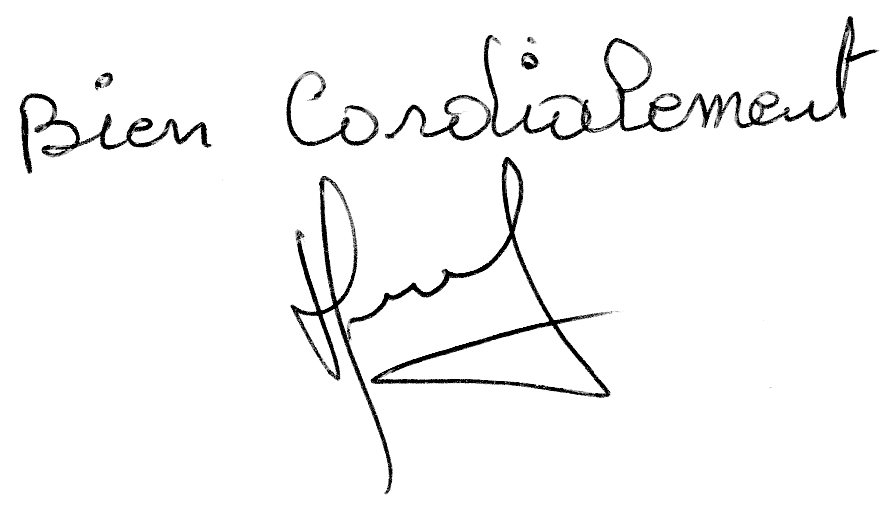 Bien Cordialement